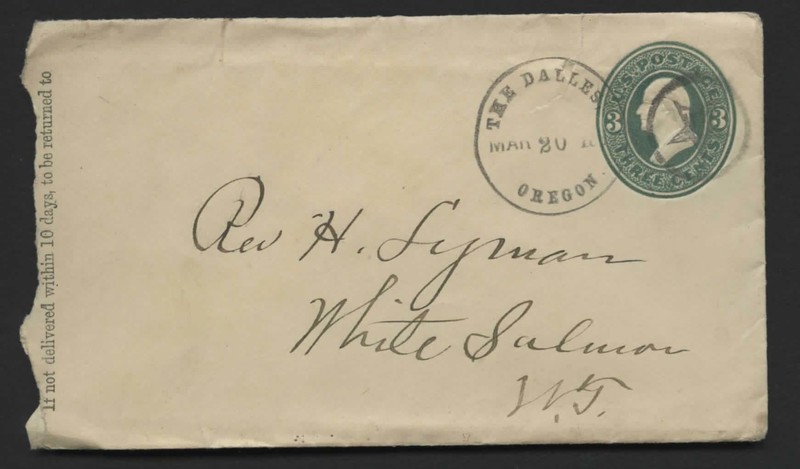 If not delivered within 10 days, to be returned to
THE DALLES
MAR 20
OREGON.
U.S. POSTAGE
3 3
THREE CENTS
Rev H. Lyman
White Salmon
W.T.